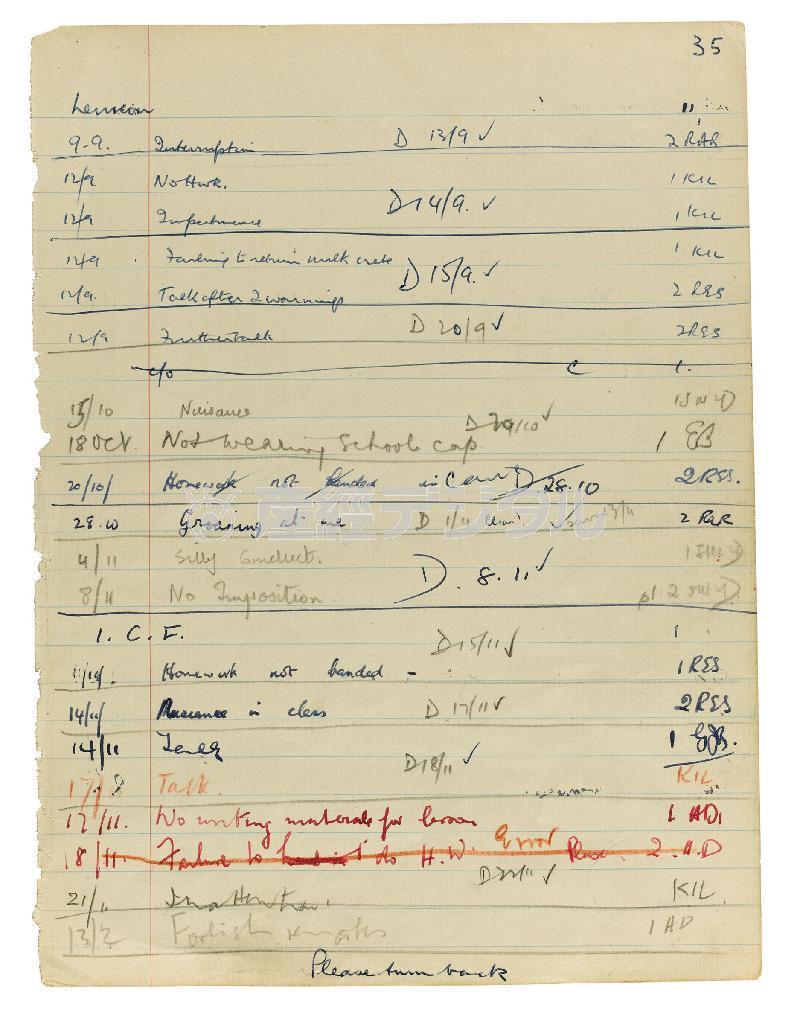 35
Lennon "
9-9. Interruption D 13/9 ✓ 2 RAR
12/9 No Hwk. 1 KIL
12/9 Impertinence D 14/9. ✓ 1 KIL
12/9 Failing to return milk crate 1 KIL
12/9. Talk after 2 warnings D 15/9. ✓ 2 RES
12/9 Further talk D 20/9 ✓ 2 RES
c/o C 1.
15/10 Nuisance
18 Oct. Not wearing School cap D 29/10 ✓ 1 EB
20/10/ Homework not handed in D 28.10 2 RES.
産経デジタル
28.10 Groaning at me D 1/11 ✓ 2 RAR
4/11 Silly Conduct.
8/11 No Imposition. D. 8.11 ✓
1. C. E. D 15/11 ✓ 1
11/10/. Homework not handed - 1 RES
14/11 Nuisance in class D 17/11 ✓ 2 RES
14/11 D 18/11 ✓ 1
17/ Talk. KIL
17/11. No writing materials for lesson 1 AD,
18/11. Failure to do H.W. Error Please 2. A.D
D 22/11 ✓
21/11 Inattention. KIL
13/2 Foolish remarks 1 AD
Please turn back